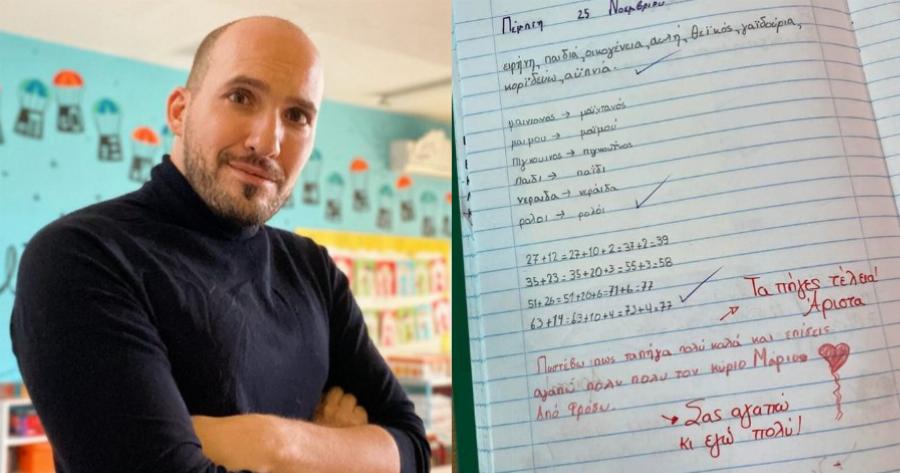 Πέμπτη 25 Νοεμβρίου
ειρήνη, παιδιά, οικογένεια, αυλή, θεϊκός, γαϊδούρια,
κοροϊδεύω, αϋπνία.
μαιντανος → μαϊντανός
μαιμου → μαϊμού
πιγκουινος → πιγκουίνος
παιδι → παϊδι
νεραιδα → νεράιδα
ρολοι → ρολόι
27+12=27+10+2=37+2=39
35+23=35+20+3=55+3=58
51+26=51+20+6=71+6=77
63+14=63+10+4=73+4=77
Τα πήγες τέλεια!
Άριστα
Πιστέβω πως τα πήγα πολύ καλά και επίσεις
αγαπώ πολυ πολυ τον κύριο Μάριο
Από Φρόσω.
→ Σας αγαπώ
κι εγώ πολύ!